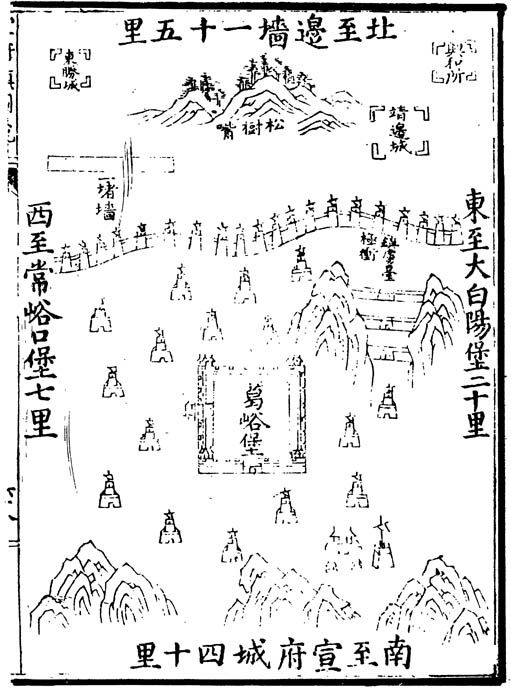 北至邊墻一十五里
興和所
東勝城
靖邊城
松樹嘴
一堵墻
極衝
東至大白陽堡二十里
西至常峪口堡七里
葛峪堡
南至宣府城四十里